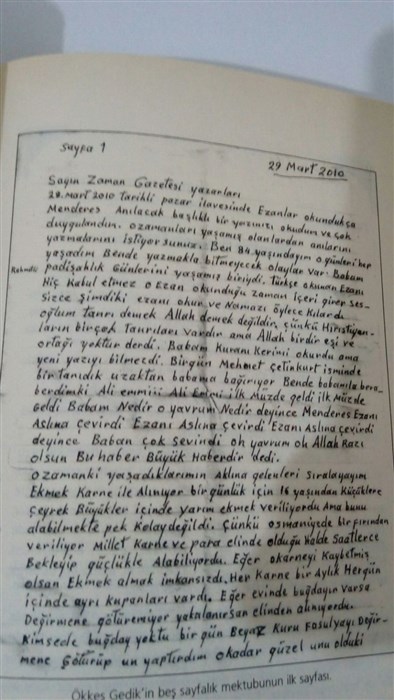 Sayfa 1
29 Mart 2010
Sayın Zaman Gazetesi yazarları
28. Mart 2010 tarihli pazar ilavesinde Ezanlar okundukça
Menderes Anılacak başlıklı bir yazınızı okudum ve çok
duygulandım. o zamanları yaşamış olanlardan anılarını
yazmalarını istiyorsunuz. Ben 84 yaşındayım o günleri hep
yaşadım Bende yazmakla bitmeyecek olaylar var. Babam
Rahmetli padişahlık Günlerini yaşamış biriydi. Türkçe okunan Ezanı
Hiç Kabul etmez o Ezan okunduğu zaman içeri girer Ses-
Sizce şimdiki ezanı okur ve Namazı öylece Kılardı
oğlum Tanrı demek Allah demek değildir, çünkü Hiristiyan-
ların birçok Tanrıları vardır ama Allah birdir eşi ve
ortağı yoktur derdi. Babam Kuranı Kerimi okurdu ama
yeni yazıyı bilmezdi. Birgün Mehmet Çetinkurt isminde
bir tanıdık uzaktan babama bağırıyor Bende babamla bera-
berdimki Ali emmiii Ali Emmi ilk Müzde geldi ilk Müzde
Geldi Babam Nedir o yavrum Nedir deyince Menderes Ezanı
Aslına çevirdi Ezanı Aslına çevirdi Ezanı Aslına çevirdi
deyince Babam çok Sevindi oh yavrum oh Allah Razı
olsun Bu haber Büyük Haberdir dedi.
o zamanki yaşadıklarımın Aklıma gelenleri Sıralayayım
Ekmek Karne ile Alınıyor bir günlük için 16 yaşından Küçüklere
çeyrek Büyükler içinde yarım ekmek veriliyordu Ama bunu
alabilmekte pek Kolay değildi. Çünkü osmaniyede bir fırından
veriliyor Millet Karne ve para elinde olduğu halde Saatlerce
Bekleyip güçlükle Alabiliyordu. Eğer o karneyi Kaybetmiş
olsan Ekmek almak imkansızdı. Her Karne bir Aylık Hergün
içinde ayrı Kupanları vardı. Eğer evinde buğdayın varsa
Değirmene götüremiyor yakalanırsan elinden alınıyordu.
Kimsede buğday yoktu bir gün Beyaz Kuru Fosulyayı Değir-
mene Götürüp un yaptırdım o kadar güzel unu olduki
Ökkeş Gedik'in beş sayfalık mektubunun ilk sayfası.